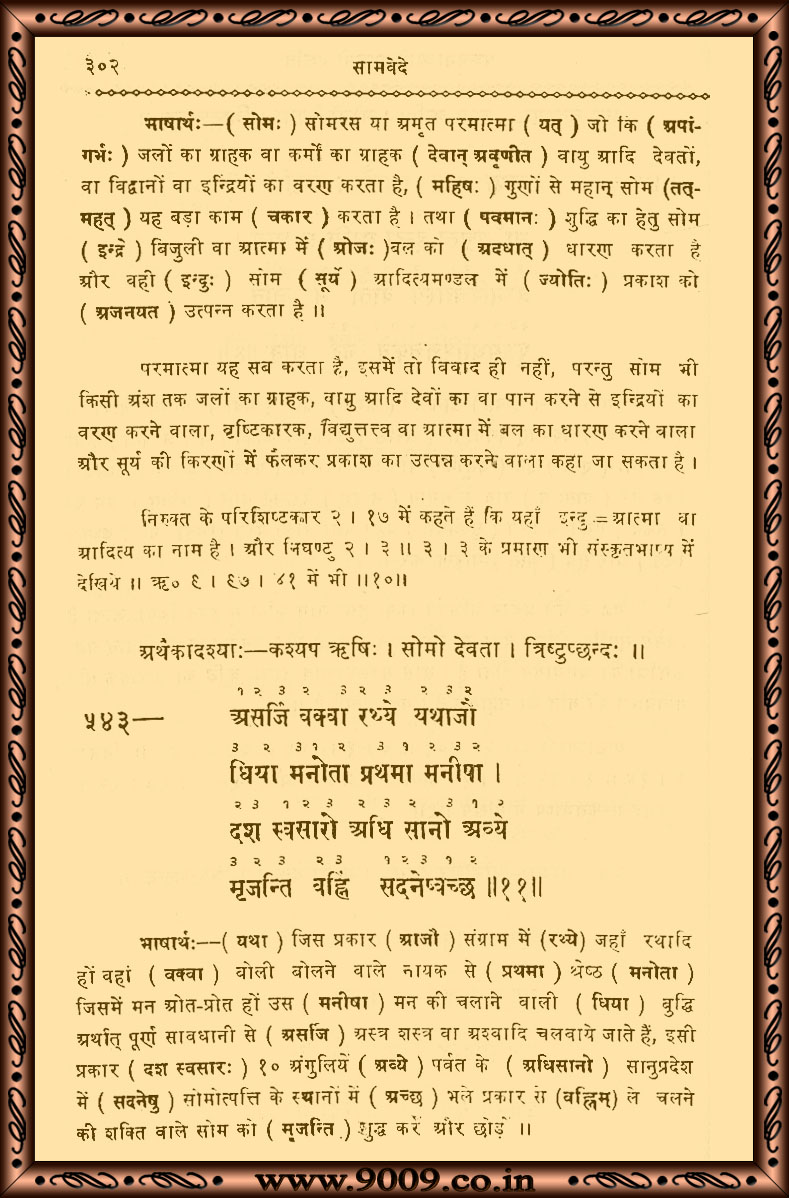 ३०२ सामवेदे
भाषार्थः—( सोमः ) सोमरस या अमृत परमात्मा ( यत् ) जो कि ( अपां-
गर्भः ) जलों का ग्राहक वा कर्मों का ग्राहक ( देवान् अवृणीत ) वायु आदि देवतों,
वा विद्वानों वा इन्द्रियों का वरण करता है, ( महिषः ) गुणों से महान् सोम (तत्-
महत् ) यह बड़ा काम ( चकार ) करता है । तथा ( पवमानः ) शुद्धि का हेतु सोम
( इन्द्रे ) बिजुली वा आत्मा में ( ओजः )बल को ( अदधात् ) धारण करता है
और वही ( इन्दुः ) सोम ( सूर्ये ) आदित्यमण्डल में ( ज्योतिः ) प्रकाश को
( अजनयत ) उत्पन्न करता है ॥
परमात्मा यह सब करता है, इसमें तो विवाद ही नहीं, परन्तु सोम भी
किसी अंश तक जलों का ग्राहक, वायु आदि देवों का वा पान करने से इन्द्रियों का
वरण करने वाला, वृष्टिकारक, विद्युत्तत्त्व वा आत्मा में बल का धारण करने वाला
और सूर्य की किरणों में फैलकर प्रकाश का उत्पन्न करने वाला कहा जा सकता है ।
निरुक्त के परिशिष्टकार २ । १७ में कहते हैं कि यहाँ इन्दु = आत्मा वा
आदित्य का नाम है । और निघण्टु २ । ३ ॥ ३ । ३ के प्रमाण भी संस्कृतभाष्य में
देखिये ॥ ऋ० ९ । ९७ । ४१ में भी ॥१०॥
अथैकादश्याः—कश्यप ऋषिः । सोमो देवता । त्रिष्टुप्छन्दः ॥
१ २ ३ २ ३ २ ३ २ ३ २
५४३— असर्जि वक्वा रथ्ये यथाजौ
३ २ ३ १ २ ३ १ २ ३ २
धिया मनोता प्रथमा मनीषा ।
२ ३ १ २ ३ २ ३ २ ३ १ २
दश स्वसारो अधि सानो अव्ये
३ २ ३ २ ३ १ २ ३ १ २
मृजन्ति वह्निं सदनेष्वच्छ ॥११॥
भाषार्थः—( यथा ) जिस प्रकार ( आजौ ) संग्राम में (रथ्ये) जहाँ रथादि
हों वहां ( वक्वा ) बोली बोलने वाले नायक से ( प्रथमा ) श्रेष्ठ ( मनोता )
जिसमें मन ओत-प्रोत हों उस ( मनीषा ) मन की चलाने वाली ( धिया ) बुद्धि
अर्थात् पूर्ण सावधानी से ( असर्जि ) अस्त्र शस्त्र वा अश्वादि चलवाये जाते हैं, इसी
प्रकार ( दश स्वसारः ) १० अंगुलियें ( अव्ये ) पर्वत के ( अधिसानो ) सानुप्रदेश
में ( सदनेषु ) सोमोत्पत्ति के स्थानों में ( अच्छ ) भले प्रकार से (वह्निम्) ले चलने
की शक्ति वाले सोम को ( मृजन्ति ) शुद्ध करें और छोड़ें ॥
www.9009.co.in